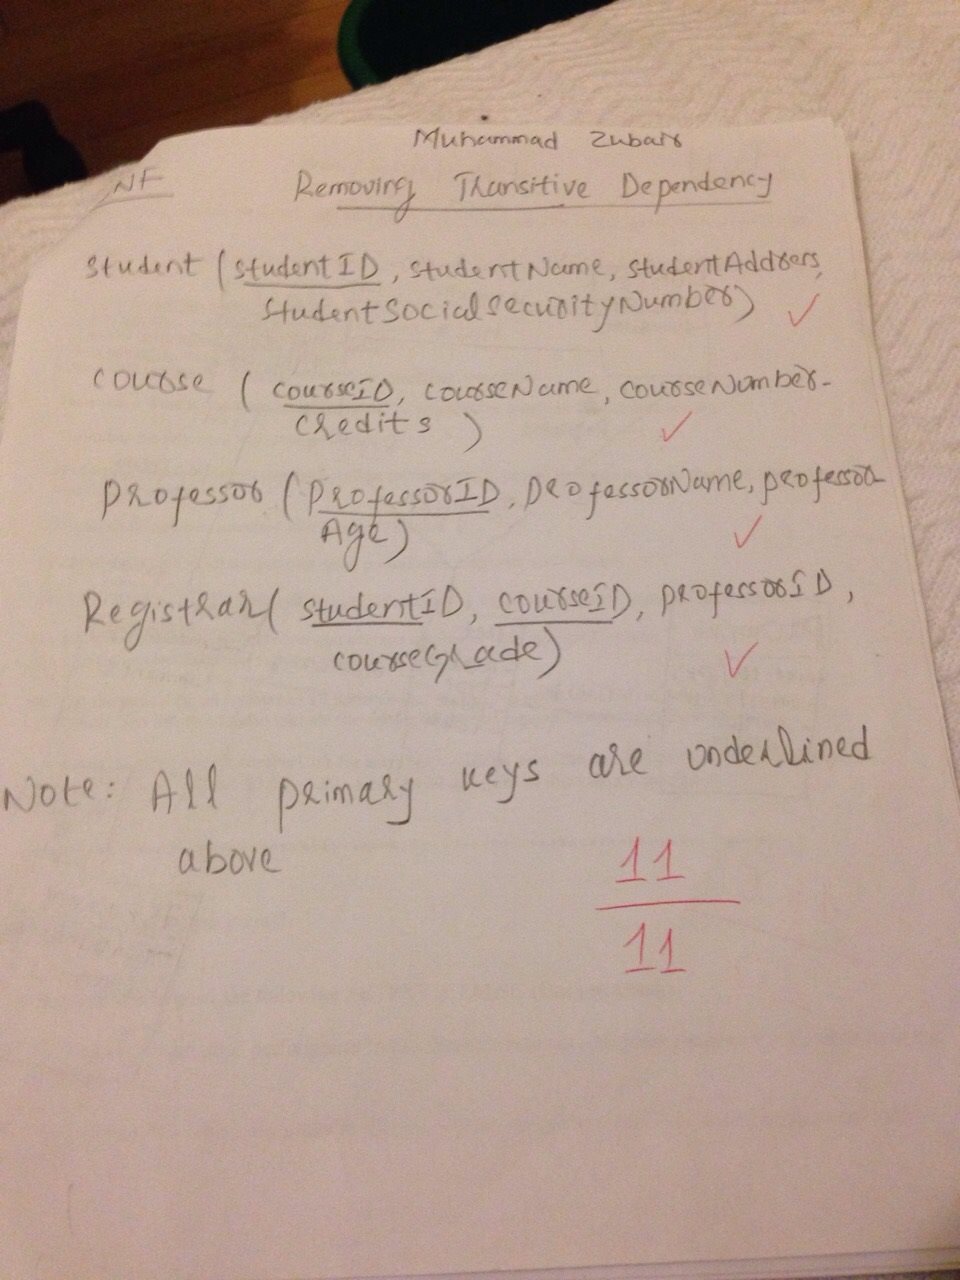 Muhammad Zubair
NF
Removing Transitive Dependency
Student (studentID, studentName, studentAddress,
studentSocialSecurityNumber)
course (courseID, courseName, courseNumber-
Credits)
Professor (ProfessorID, professorName, professor
Age)
Registrar( studentID, courseID, professorID,
courseGrade)
Note: All primary keys are underlined
above
11
11